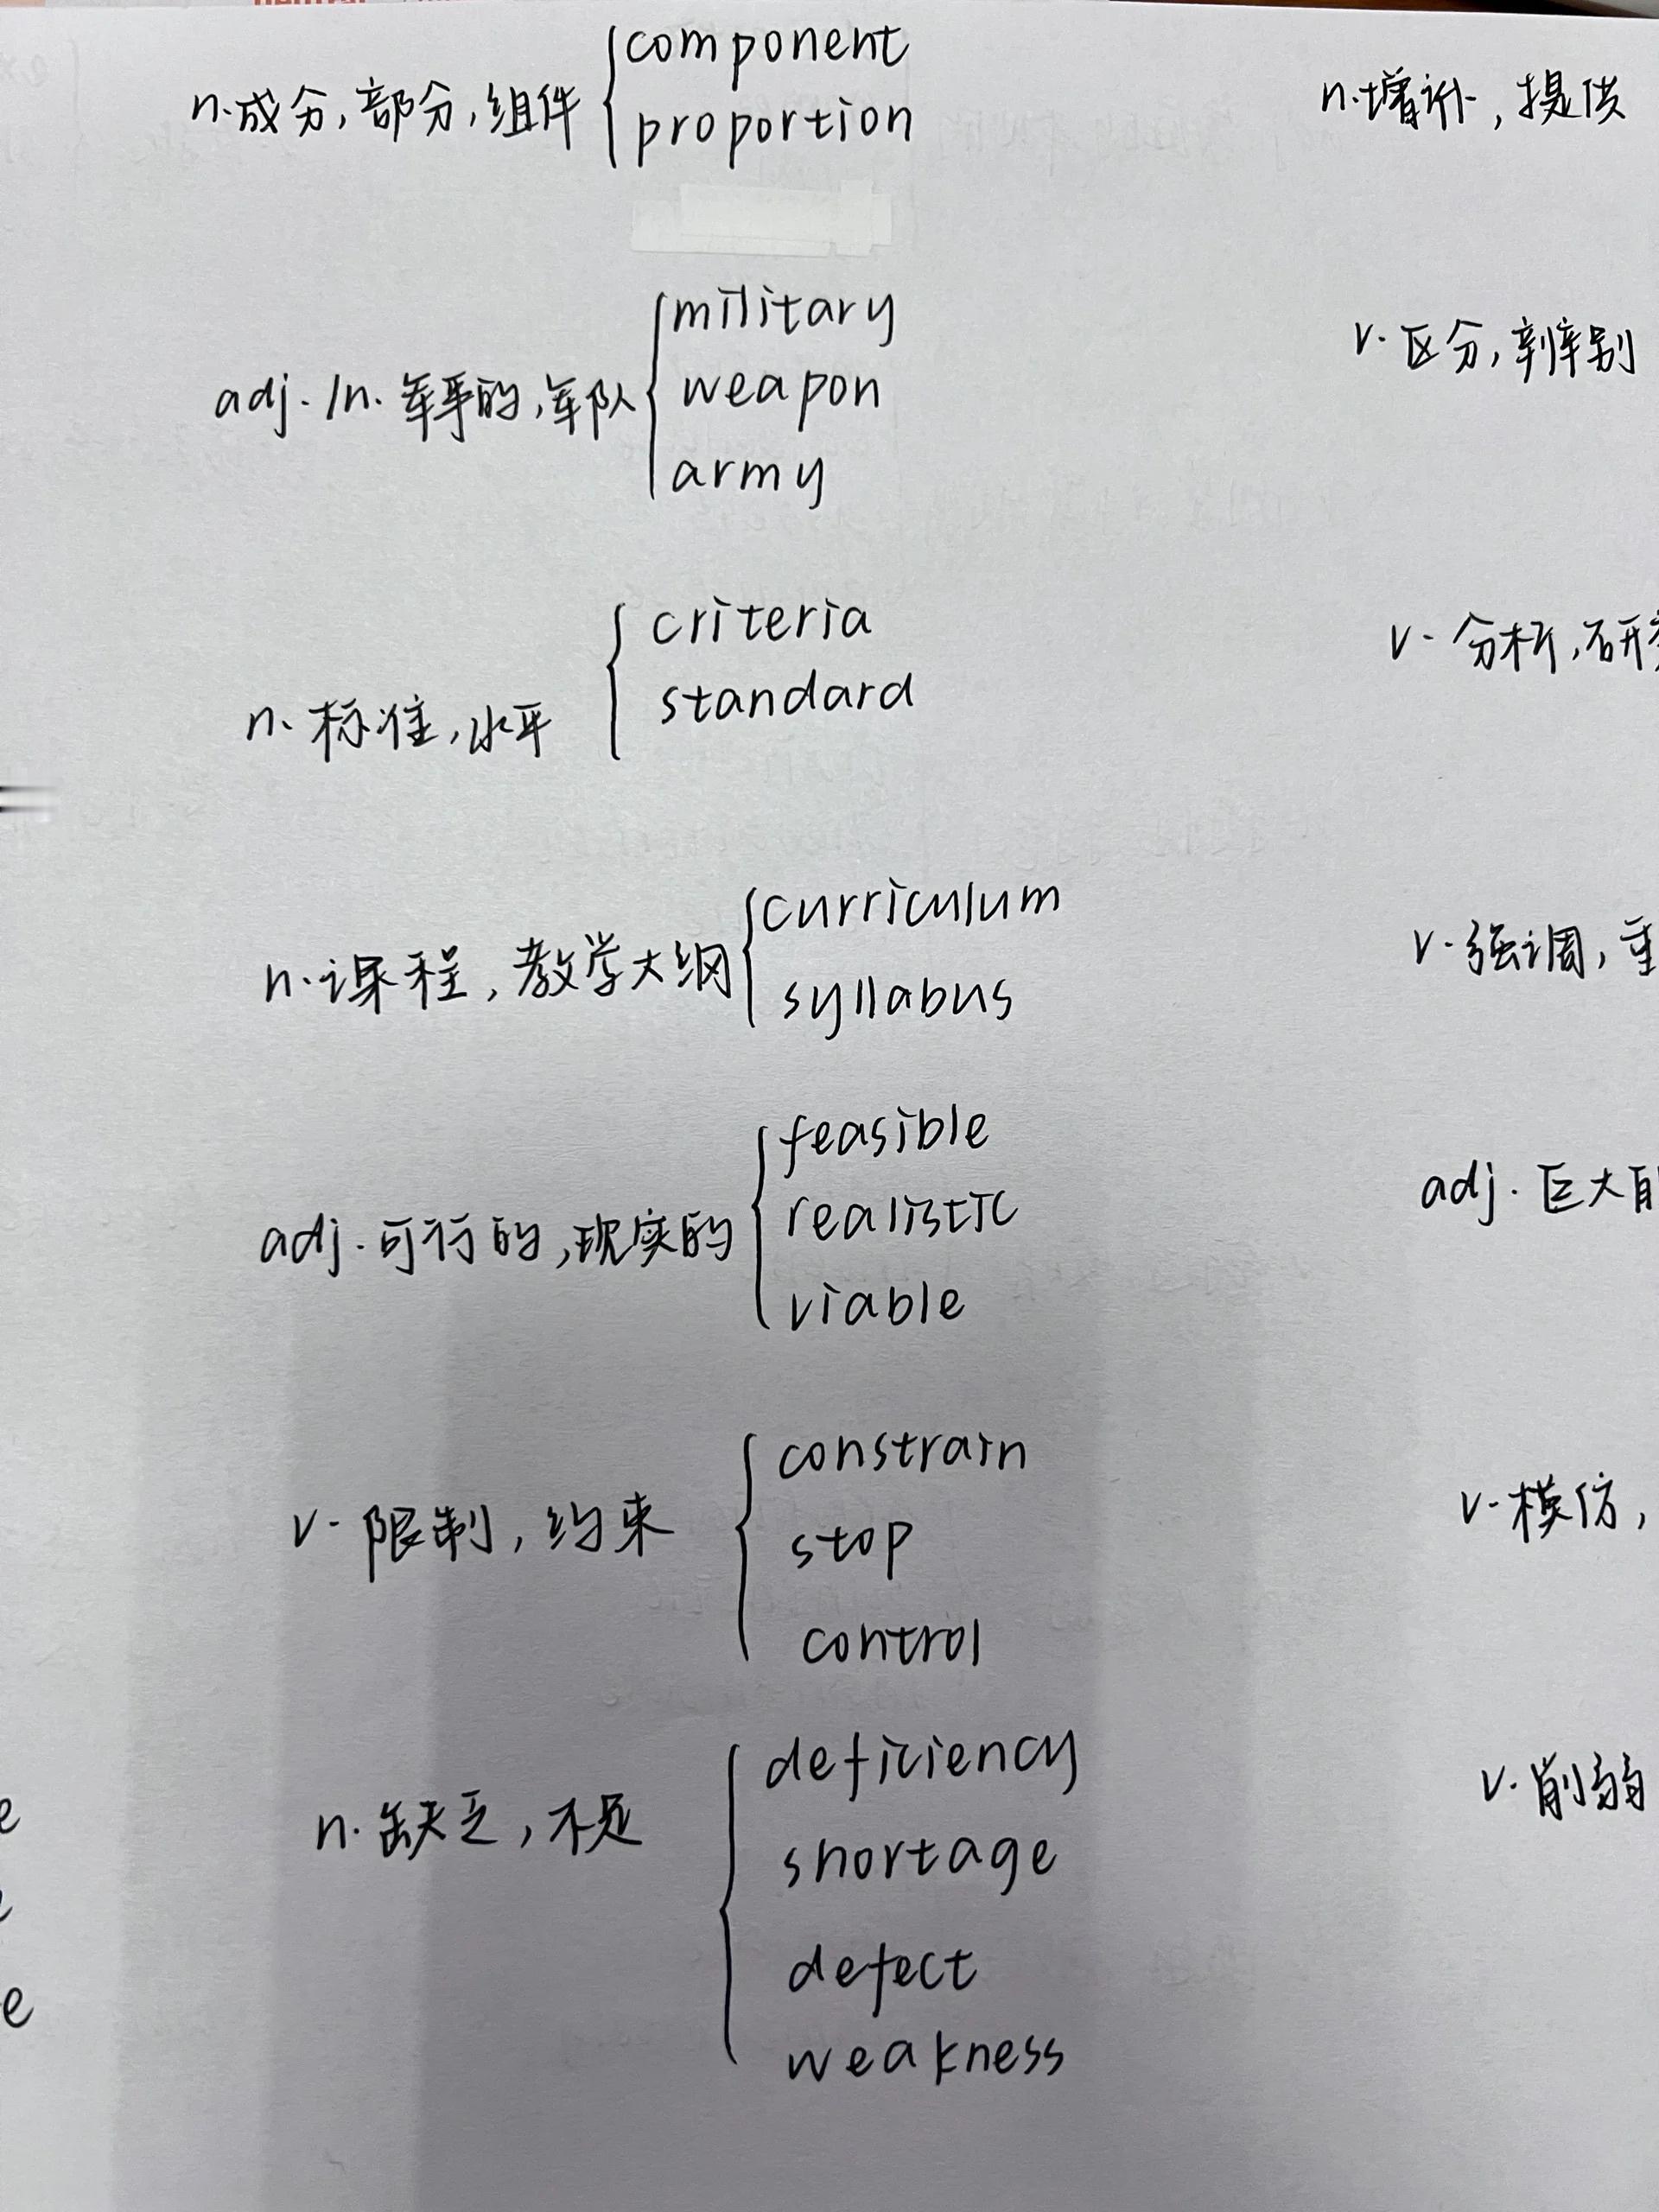 n.成分,部分,组件
component
proportion
n.增补,提供
adj./n. 军事的,军队
military
weapon
army
v.区分,辨别
n.标准,水平
criteria
standard
v.分析,研
n.课程,教学大纲
curriculum
syllabus
v.强调,重
adj.可行的,现实的
feasible
realistic
viable
adj.巨大
v.限制,约束
constrain
stop
control
v.模仿,
n.缺乏,不足
deficiency
shortage
defect
weakness
v.削弱
e
e